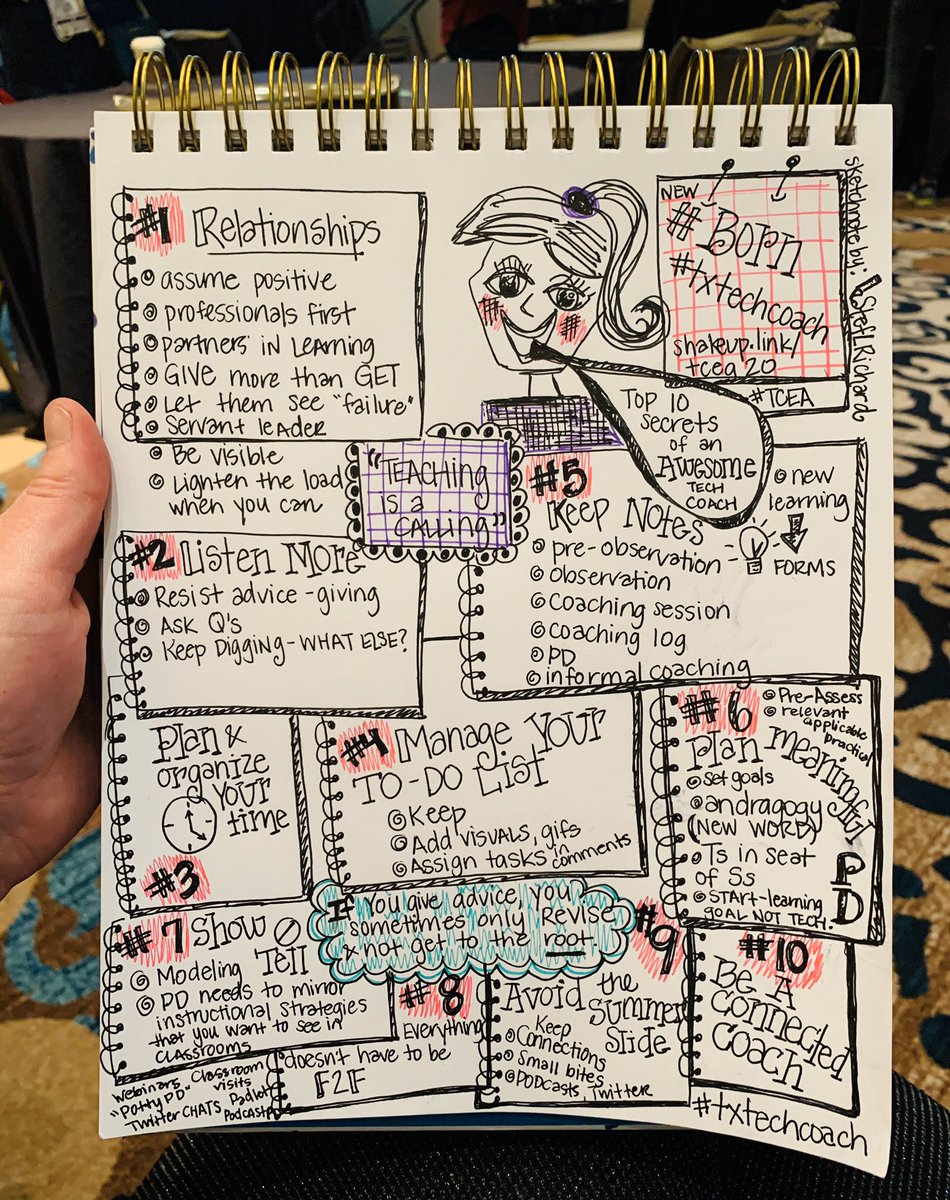 #1 Relationships
assume positive
professionals first
partners in Learning
GIVE more than GET
Let them see "failure"
Servant leader
Be visible
Lighten the load
when you can
NEW
#Born
#txtechcoach
shakeup.link/
tcea20
#TCEA
sketchnote by:
StefLRichards
Top 10
Secrets
of an
Awesome
TECH
COACH
"TEACHING
is a
CALLING"
#2 Listen More
Resist advice-giving
ASK Q's
Keep Digging-WHAT ELSE?
Plan &
organize
YOUR
time
#3
#4 Manage YOUR
TO-DO LIST
Keep
Add VISUALS, gifs
Assign tasks in
comments
#5
Keep Notes
pre-observation
observation
coaching session
coaching log
PD
informal coaching
new
learning
FORMS
#6
Pre-Assess
relevant
applicable
practical
Plan meaningful
PD
set goals
andragogy
(NEW WORD)
Ts in seat
of Ss
START-learning
GOAL NOT TECH.
#7 Show
Tell
Modeling
PD needs to mirror
instructional strategies
that you want to see in
CLASSROOMS
If you give advice, you
sometimes only revise
& not get to the root.
#8
Everything
doesn't have to be
F2F
Webinars Classroom
visits
"Potty PD"
Padlet
Twitter CHATS
Podcasts
#9
Avoid the
Summer
Slide
Keep
Connections
Small bites
PODCasts, Twitter
#10
Be A
Connected
Coach
#txtechcoach